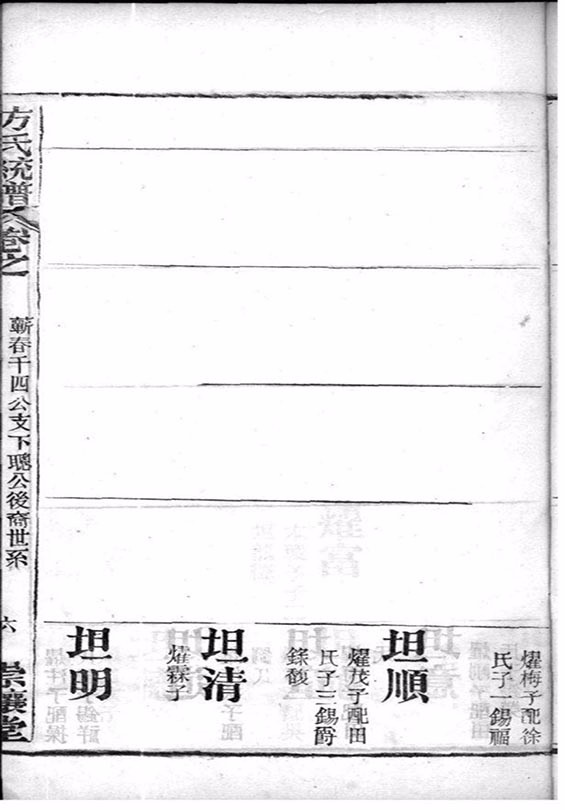 燿梅子配徐
氏子一錫福
坦順
燿茂子配田
氏子三錫爵
錸馥
坦清
燿霖子
坦明
方氏統譜
卷之一
蘄春千四公支下聰公後裔世系
六
崇讓堂